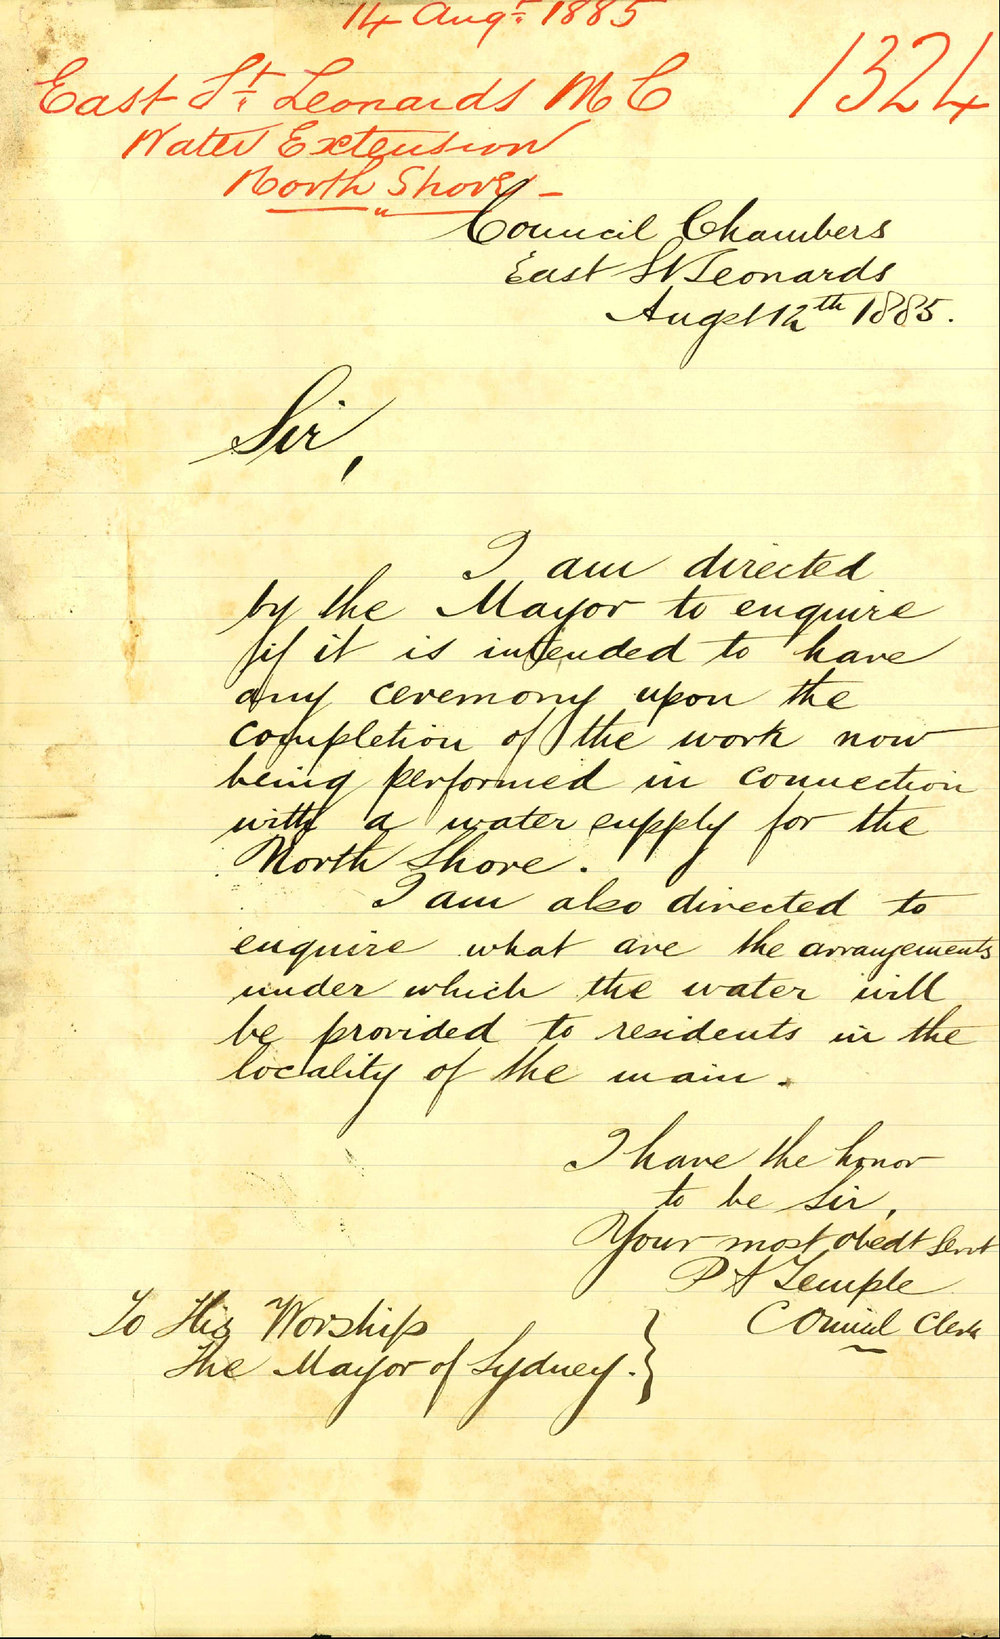 14 Augt. 1885
1324
East St. Leonards M C
Water Extension
North Shore -
Council Chambers
East St Leonards
Augst 12th 1885.
Sir,
I am directed
by the Mayor to enquire
if it is intended to have
any ceremony upon the
completion of the work now
being performed in connection
with a water supply for the
North Shore.
I am also directed to
enquire what are the arrangements
under which the water will
be provided to residents in the
locality of the main.
I have the honor
to be Sir,
Your most obedt Servt
P A Temple
Council Clerk
To His Worship
The Mayor of Sydney.